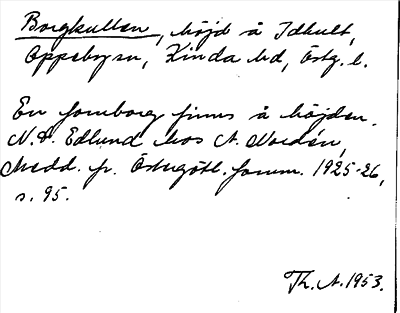 Borgkullen, höjd å Idhult,
Oppeby sn, Kinda hd, Östg. l.
En fornborg finns å höjden.
N. A. Edlund hos A. Nordén,
Medd. fr. Östergötl. fornm. 1925-26,
s. 95.
Th. A. 1953.